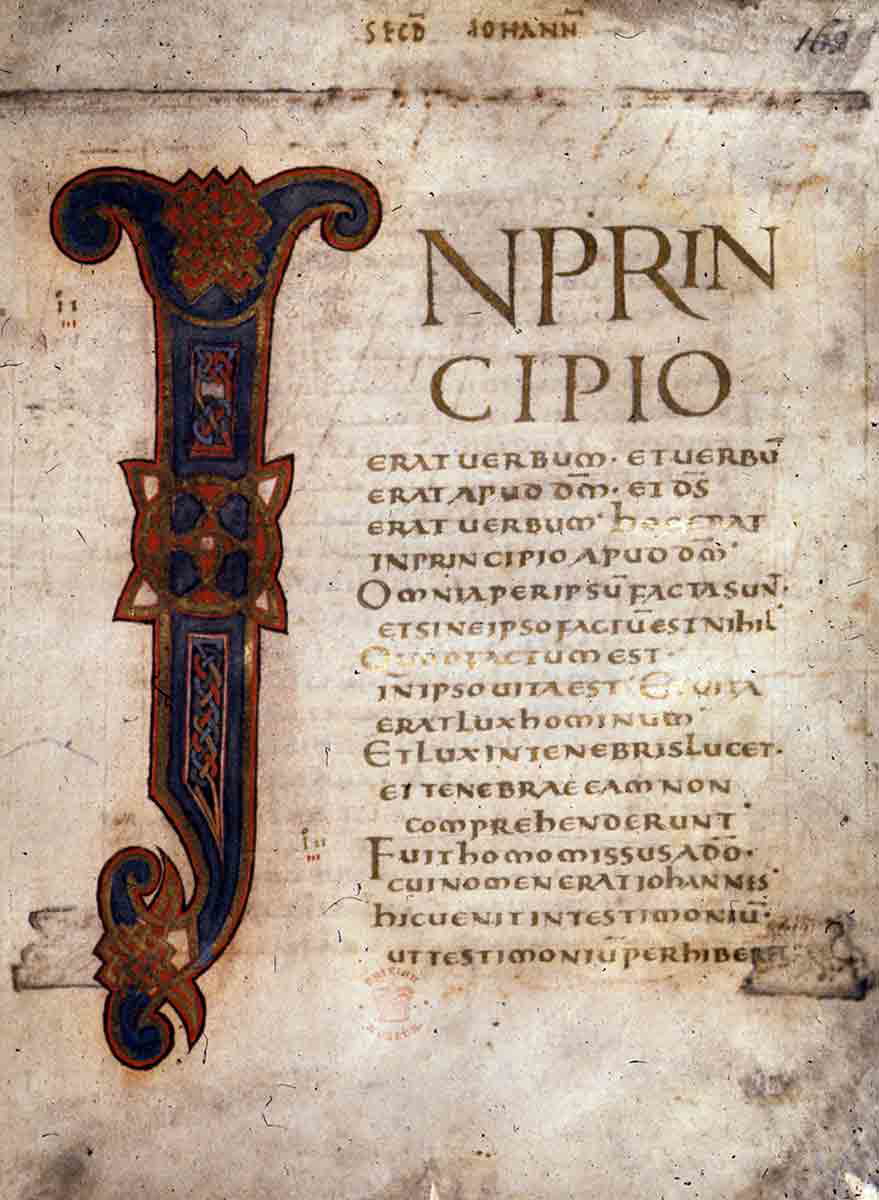 SECD̄ IOHANN̄
162
INPRIN
CIPIO
ERAT UERBUM · ET UERBŪ
ERAT APUD DM̄ · ET DS̄
ERAT UERBUM · hOC ERAT
IN PRINCIPIO APUD DM̄ ·
OMNIA PER IPSŪ FACTA SUN̄ ·
ET SINE IPSO FACTŪ EST NIhIL
QUOD FACTUM EST ·
IN IPSO UITA EST · ET UITA
ERAT LUX hOMINUM ·
ET LUX IN TENEBRIS LUCET ·
ET TENEBRAE EAM NON
COMPREhENDERUNT ·
iii
FUIT hOMO MISSUS A DŌ ·
CUI NOMEN ERAT IOhANNES ·
hIC UENIT IN TESTIMONIŪ ·
UT TESTIMONIŪ PERhIBE
MUSEUM